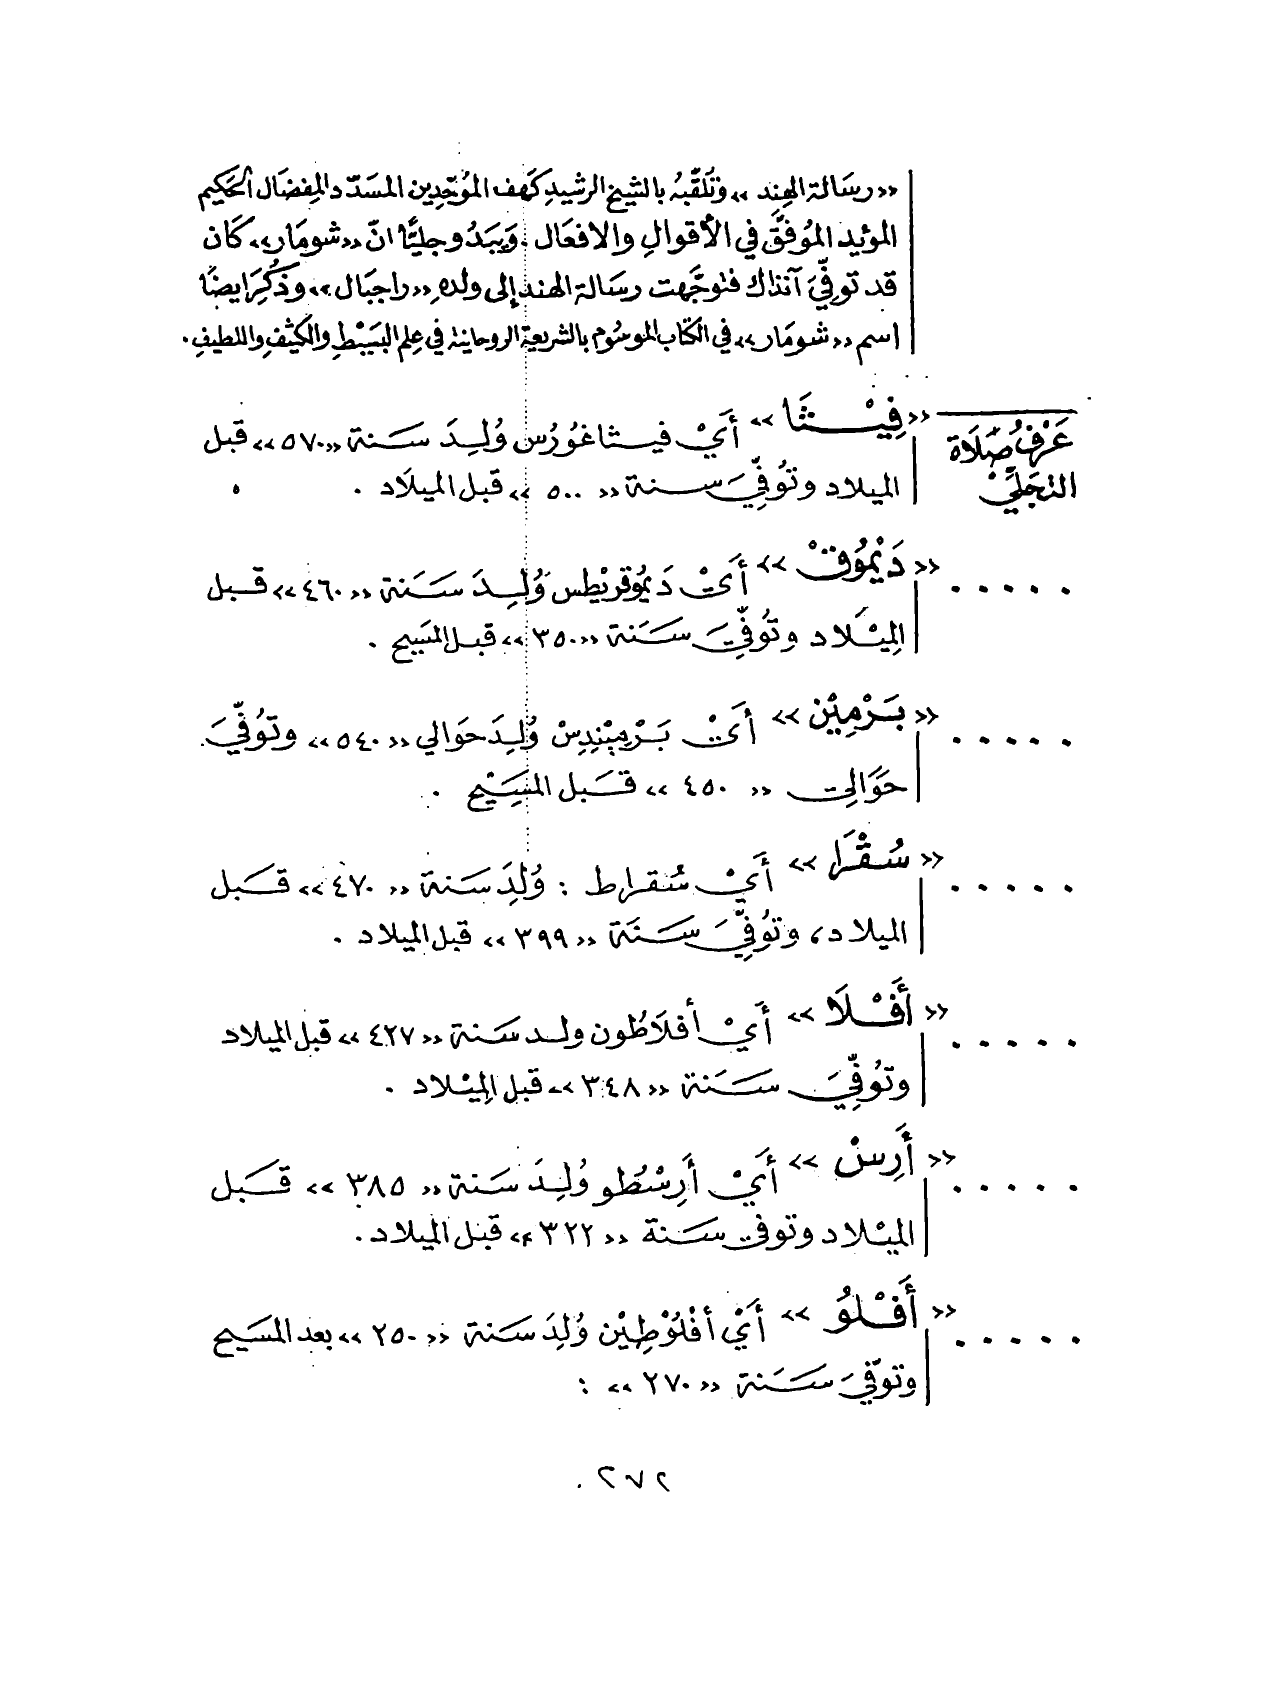 «رسَالة الهِند» وتُلقّبهُ بالشيخ الرشيدِ كَهف المؤحِّدين المسَدّد المِفضَال الحَكيم
المؤيد المُوفقَّ في الأقوالِ والافعَال . وَيبَدُو جليًّا انّ «شومَار» كَان
قد توفّيَ آنذاك فتوجَّهت رسَالة الهند إلى ولدهِ «راجبَال» وذُكِرَ ايضًا
اسم «شومَار» في الكتاب الموسُوم بالشريعة الروحانية في عِلم البَسِيْطِ والكثِفِ واللطيفِ .
عَرْفُ صَلَاة «فِيْثَا» أَيْ فيثاغوُرُس وُلِدَ سَنة «٥٧٠» قبل
التجَليّْ الميلاد وتوُفِّيَ سنة «٥٠٠» قبل الميلَاد .
..... «دَيْموُقْ» أَيْ دَيموُقريْطس وُلِدَ سَنَة «٤٦٠» قبل
المِيْلَاد وتوُفِّيَ سَنَة «٣٥٠» قبل المسَيح .
..... «بَرْمِيْن» أَيْ بَرْمِيْندِسْ وُلِدَ حَوَالي «٥٤٠» وتوُفِّيَ
حَوَالي «٤٥٠» قَبل المسَيْح .
..... «سُقْرَا» أَيْ سُقراط : وُلِدَ سَنة «٤٧٠» قَبل
الميلاد، وتوُفِّيَ سَنَة «٣٩٩» قبل الميلاد .
..... «أَفْلَا» أَيْ أفلَاطُون ولد سَنة «٤٢٧» قبل الميلاد
وتوُفِّيَ سَنَة «٣٤٨» قبل المِيْلاد .
..... «أَرِسْ» أَيْ أَرِسْطُو وُلِدَ سَنة «٣٨٥» قَبل
الميْلاد وتوفي سَنة «٣٢٢» قبل الميلاد .
..... «أَفْلوُ» أَيْ أفْلوُطِيْن وُلِدَ سَنة «٢٥٠» بعد المسَيح
وتوفّيَ سَنَة «٢٧٠» :
٢٧٢ .